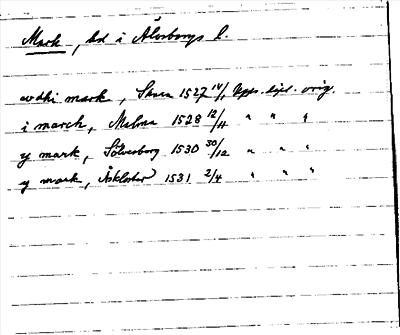 Mark, hd i Älvsborgs l.
wdhi mark, Skara 1527 14/11 Upps. dipl. orig.
i march, Malma 1528 12/11 " " "
y mark, Sölvesborg 1530 30/12 " " "
y mark, Askloster 1531 2/4 " " "